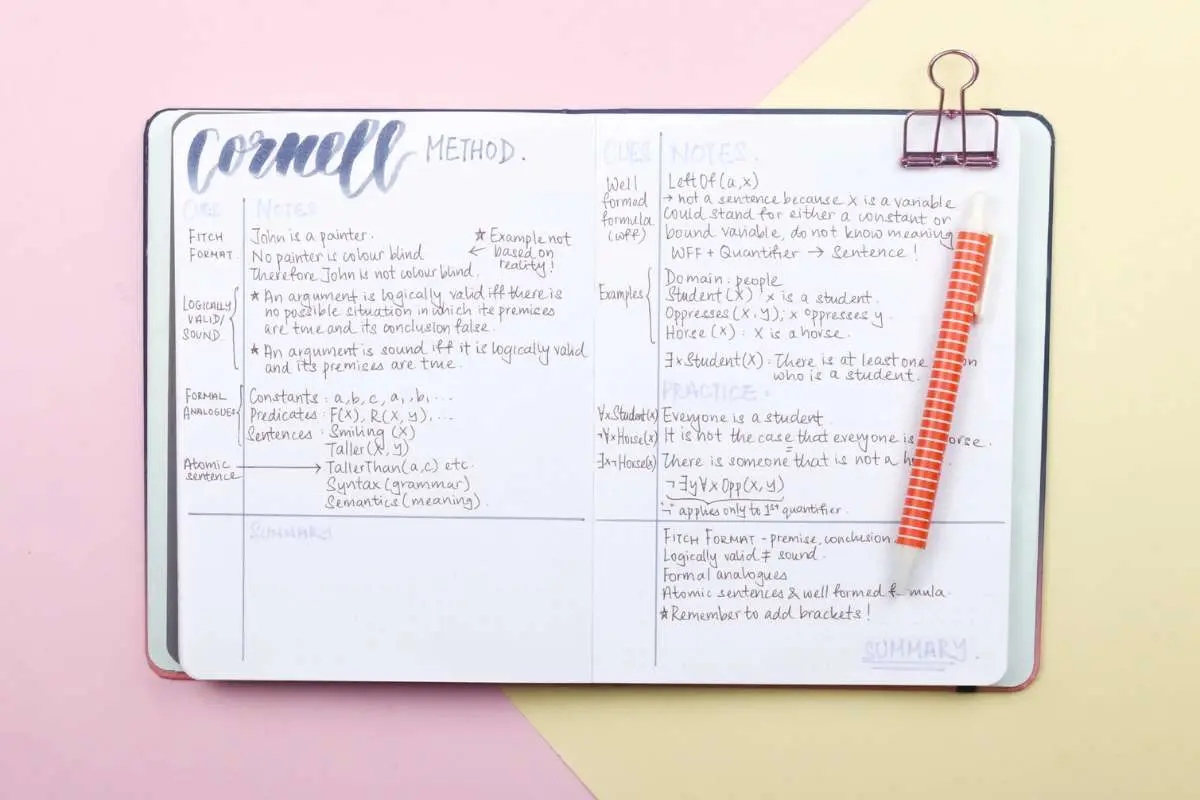 Cornell METHOD.
CUES
NOTES
FITCH
FORMAT.
John is a painter.
No painter is colour blind
Therefore John is not colour blind.
★ Example not
← based on
reality!
LOGICALLY
VALID/
SOUND
★ An argument is logically valid iff there is
no possible situation in which its premises
are true and its conclusion false.
★ An argument is sound iff it is logically valid
and its premises are true.
FORMAL
ANALOGUES
Constants : a, b, c, a₁, b₁ ...
Predicates : F(x), R(x, y), ...
Sentences : Smiling (x)
Taller (x, y)
Atomic
sentence
→ TallerThan (a, c) etc.
Syntax (grammar)
Semantics (meaning).
SUMMARY
CUES
NOTES.
Well
formed
formula
(wff)
LeftOf (a, x)
→ not a sentence because x is a variable
could stand for either a constant or
bound variable, do not know meaning
WFF + Quantifier → Sentence!
Examples
Domain : people
Student (x) : x is a student.
Oppresses (x, y); x oppresses y.
Horse (x) : x is a horse.
∃x Student (x) : There is at least one
who is a student.
PRACTICE.
∀x Student(x) Everyone is a student.
¬∀x Horse(x) It is not the case that everyone is
∃x¬Horse(x) There is someone that is not a
¬∃y∀x Opp(x, y)
'¬' applies only to 1st quantifier.
FITCH FORMAT - premise, conclusion
Logically valid ≠ sound.
Formal analogues
Atomic sentences & well formed
★ Remember to add brackets!
SUMMARY.